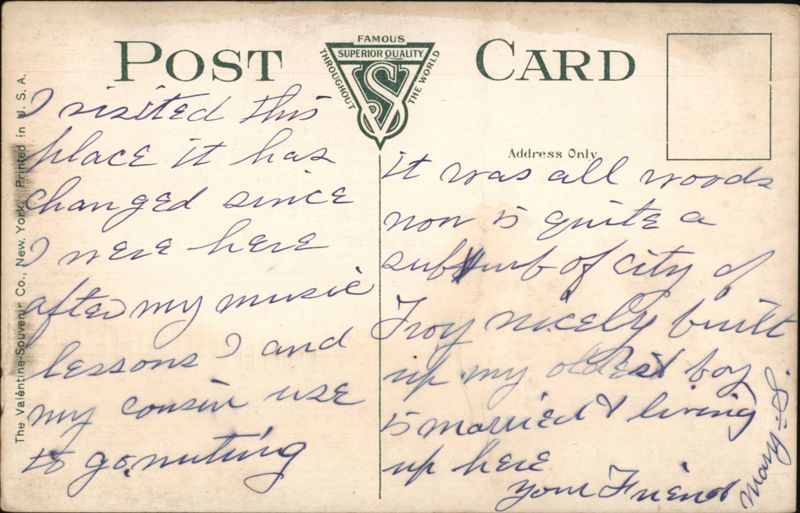 POST CARD
FAMOUS
SUPERIOR QUALITY
THROUGHOUT THE WORLD
VS
Address Only
The Valentine-Souvenir Co., New York. Printed in U. S. A.
I visited this
place it has
changed since
I were here
after my music
lessons I and
my cousin use
to go nuting
it was all woods
now is quite a
suburb of city of
Troy nicely built
up my oldest boy
is married & living
up here
your Friend
Mary S.